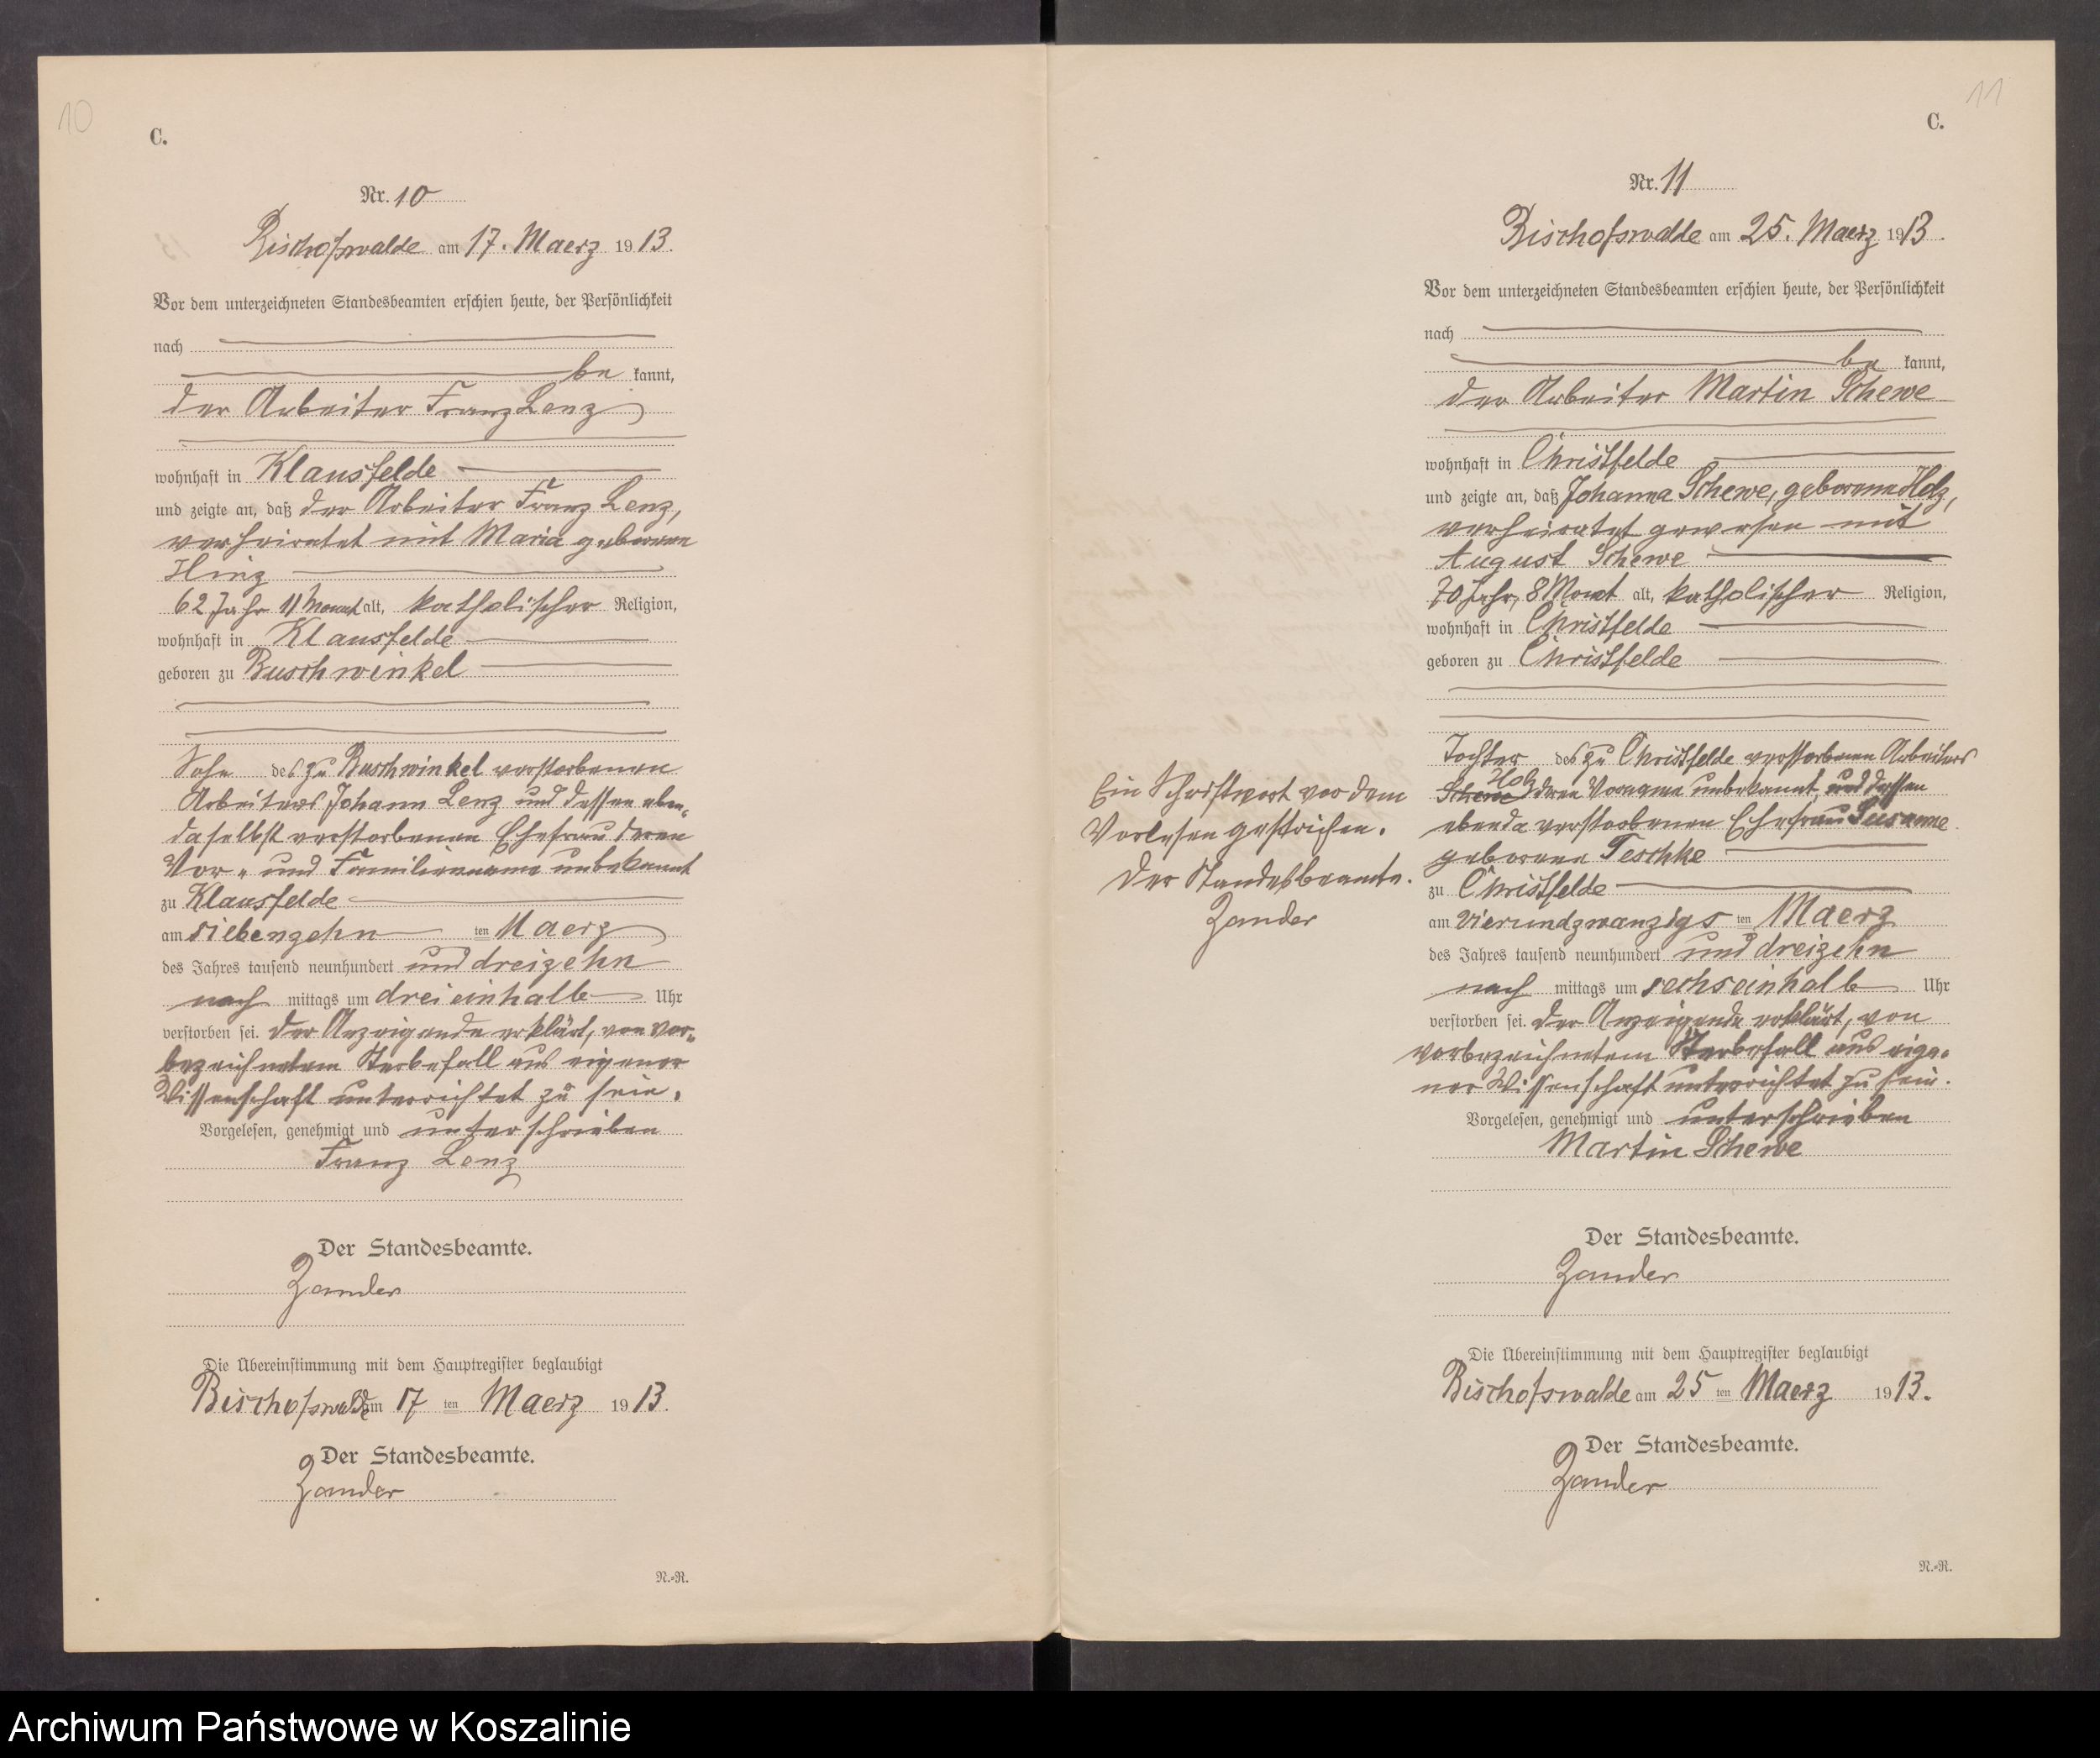 10
C.
Nr. 10
Bischofswalde am 17. Maerz 1913.
Vor dem unterzeichneten Standesbeamten erschien heute, der Persönlichkeit
nach
be kannt,
der Arbeiter Franz Lenz
wohnhaft in Klausfelde
und zeigte an, daß der Arbeiter Franz Lenz,
verheiratet mit Maria geborenen
Hinz
62 Jahr 11 Monat alt, katholischer Religion,
wohnhaft in Klausfelde
geboren zu Buschwinkel
Sohn des zu Buschwinkel verstorbenen
Arbeiters Johann Lenz und dessen eben-
daselbst verstorbenen Ehefrau deren
Vor- und Familienname unbekannt
zu Klausfelde
am siebenzehn ten Maerz
des Jahres tausend neunhundert und dreizehn
nach mittags um dreieinhalb Uhr
verstorben sei. Der Anzeigende erklärt, von vor-
bezeichnetem Sterbefall aus eigener
Wissenschaft unterrichtet zu sein.
Vorgelesen, genehmigt und unterschrieben
Franz Lenz
Der Standesbeamte.
Zander
Die Übereinstimmung mit dem Hauptregister beglaubigt
Bischofswalde am 17 ten Maerz 1913.
Der Standesbeamte.
Zander
N.-R.
11
C.
Nr. 11
Bischofswalde am 25. Maerz 1913.
Vor dem unterzeichneten Standesbeamten erschien heute, der Persönlichkeit
nach
be kannt,
der Arbeiter Martin Schewe
wohnhaft in Christfelde
und zeigte an, daß Johanna Schewe, geborene Holz,
verheiratet gewesen mit
August Schewe
70 Jahr, 8 Monat alt, katholischer Religion,
wohnhaft in Christfelde
geboren zu Christfelde
Tochter des zu Christfelde verstorbenen Arbeiters
Holz
Schewe deren Vorname unbekannt, und dessen
ebenda verstorbenen Ehefrau Susanne
geborene Teschke
zu Christfelde
am vierundzwanzigs ten Maerz
des Jahres tausend neunhundert und dreizehn
nach mittags um sechseinhalb Uhr
verstorben sei. Der Anzeigende erklärt, von
vorbezeichnetem Sterbefall aus eige-
ner Wissenschaft unterrichtet zu sein.
Vorgelesen, genehmigt und unterschrieben
Martin Schewe
Ein Schriftwort vor dem
Vorlesen gestrichen.
Der Standesbeamte.
Zander
Der Standesbeamte.
Zander
Die Übereinstimmung mit dem Hauptregister beglaubigt
Bischofswalde am 25 ten Maerz 1913.
Der Standesbeamte.
Zander
N.-R.
Archiwum Państwowe w Koszalinie